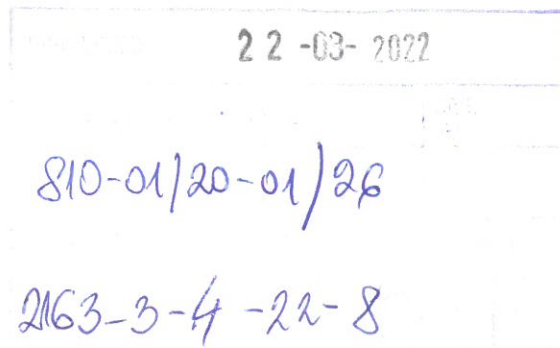 22-03-2022
810-01/20-01/26
2163-3-4-22-8